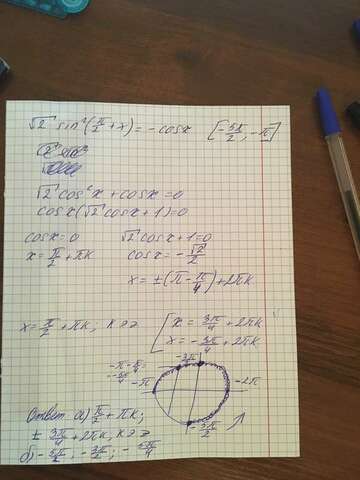 √2 sin²(π/2 + x) = -cosx [-5π/2; -π]
√2 cos²x + cosx = 0
cosx(√2 cosx + 1) = 0
cosx = 0 √2 cosx + 1 = 0
x = π/2 + πk cosx = -√2/2
x = ±(π - π/4) + 2πk
x = π/2 + πk; k ∈ Z [ x = 3π/4 + 2πk
x = -3π/4 + 2πk
-π - π/4 =
-5π/4
-π
-2π
-3π/2
Ответ а) π/2 + πk;
± 3π/4 + 2πk, k ∈ Z
б) -5π/2; -3π/2; -5π/4